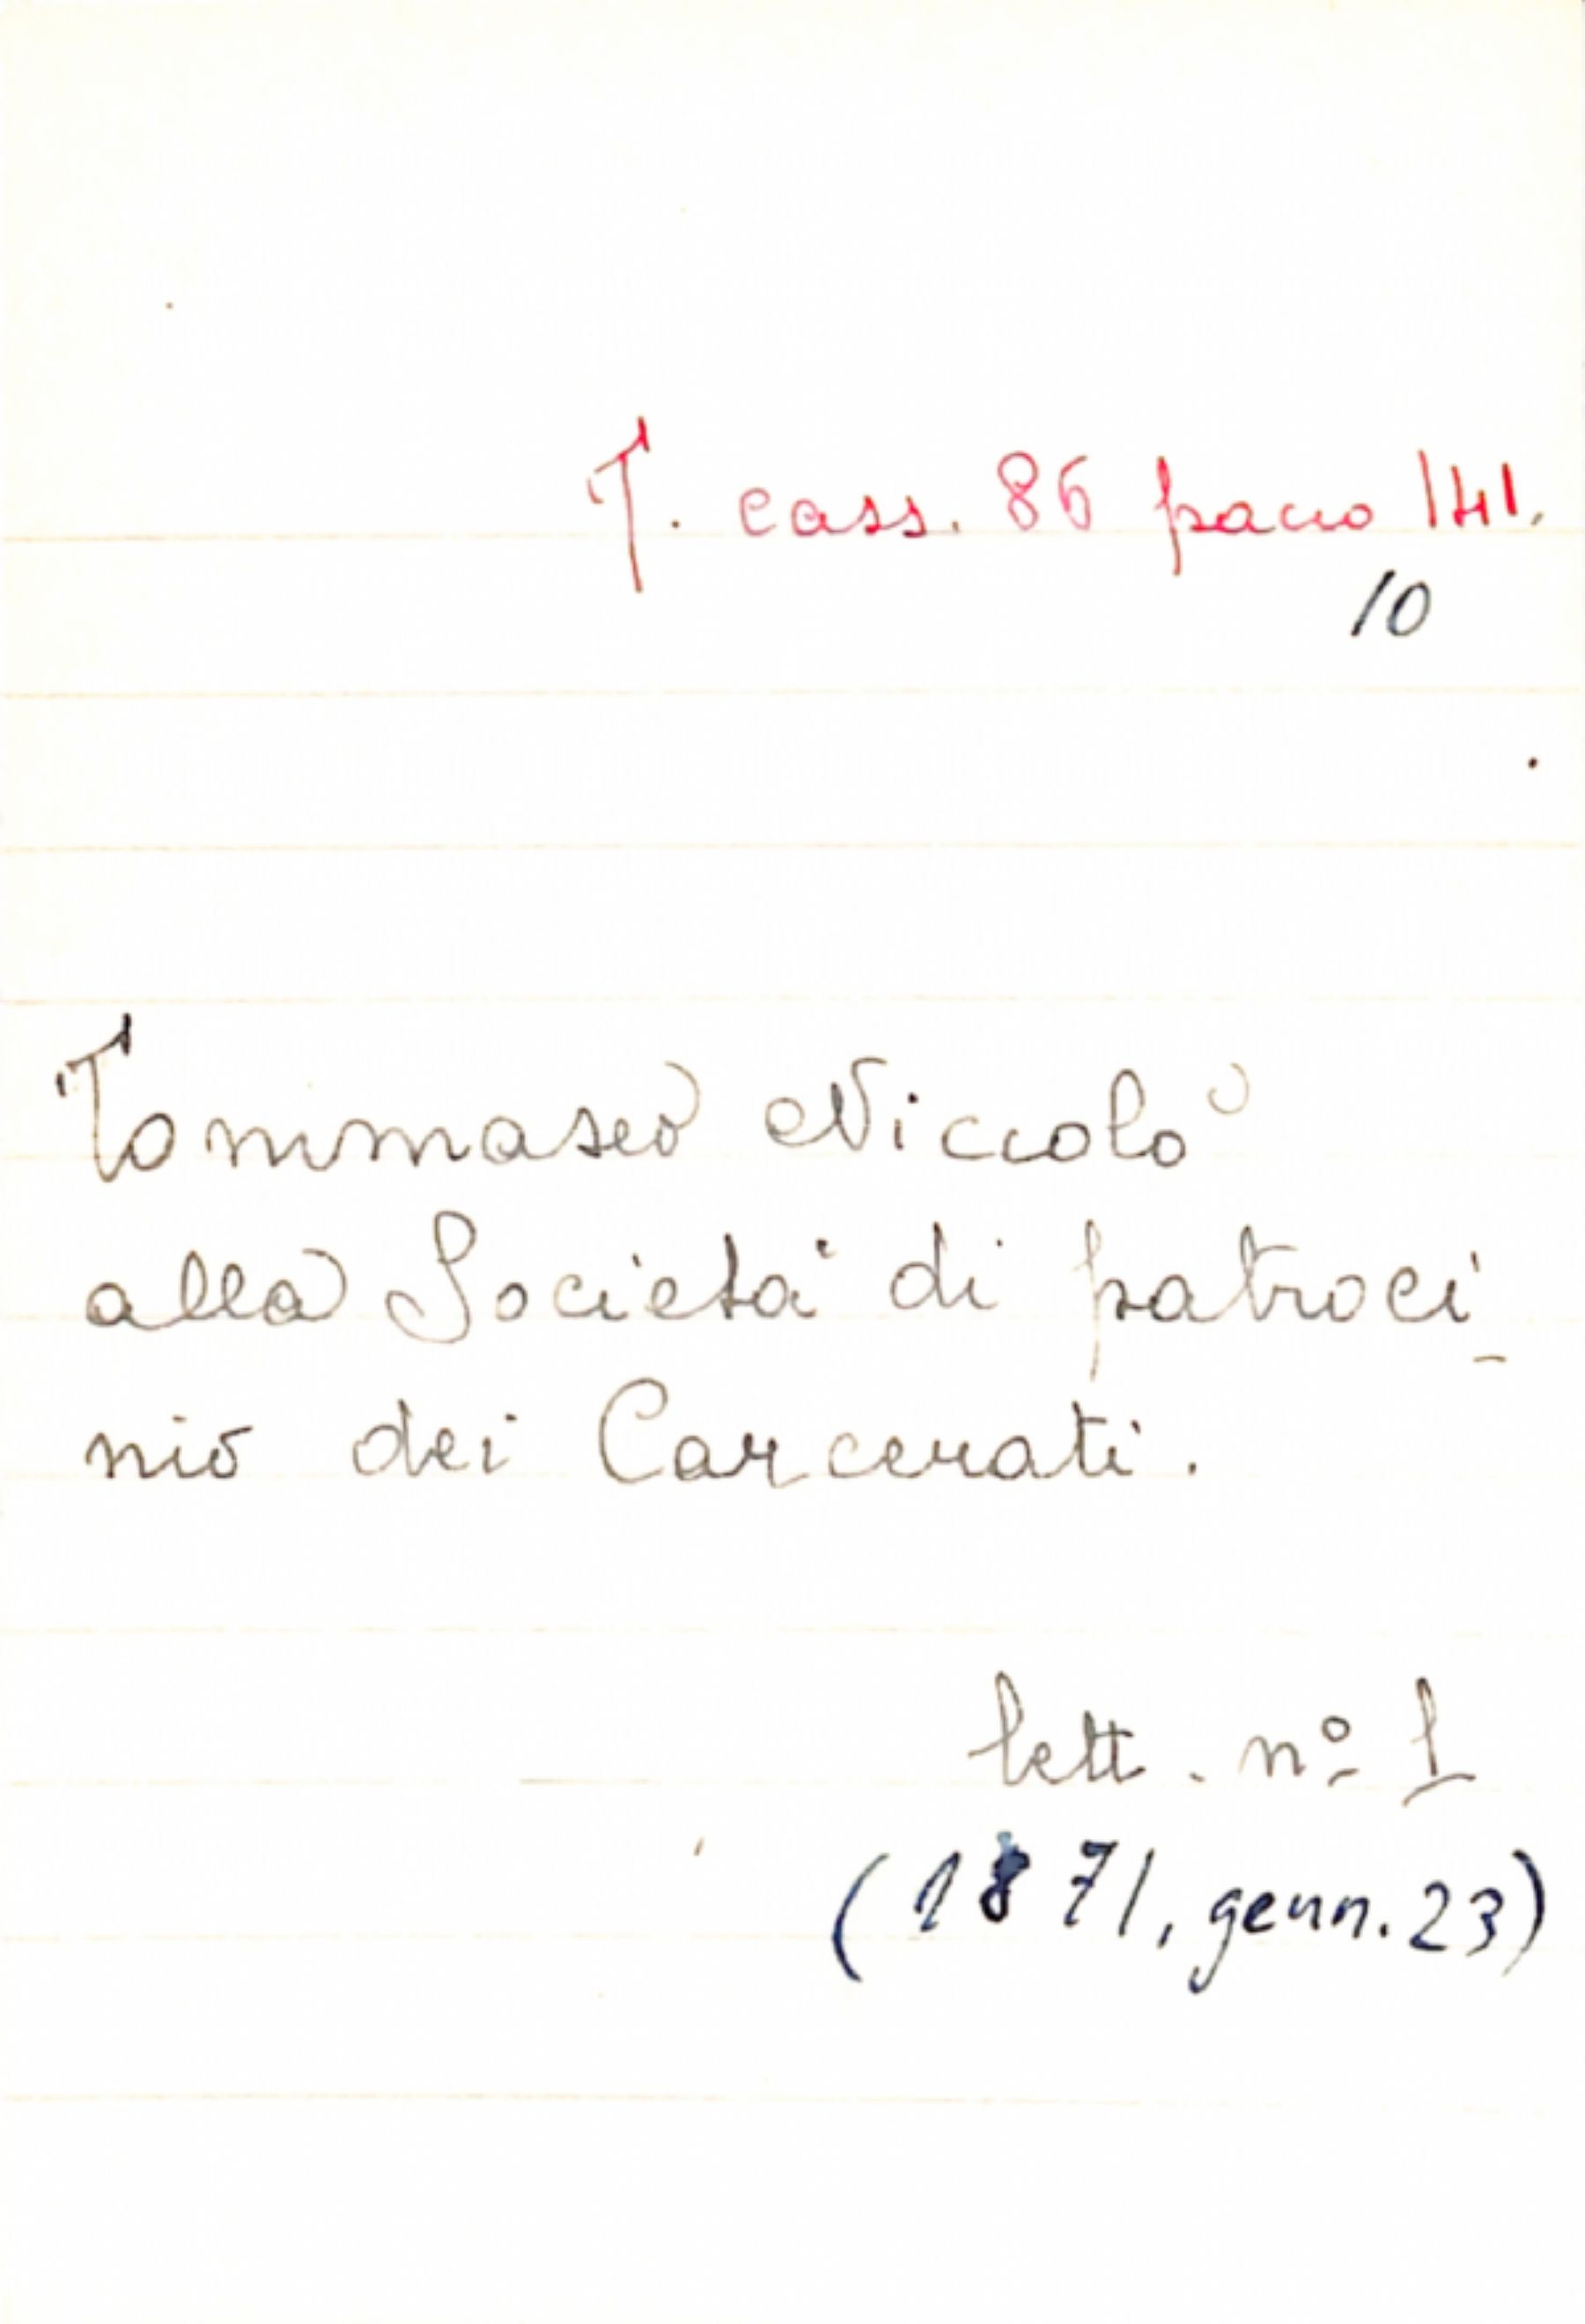 T. cass. 86 pacco 141.
10
Tommaseo Niccolò
alla Società di patroci-
nio dei Carcerati.
lett. nº 1
(1871, genn. 23)